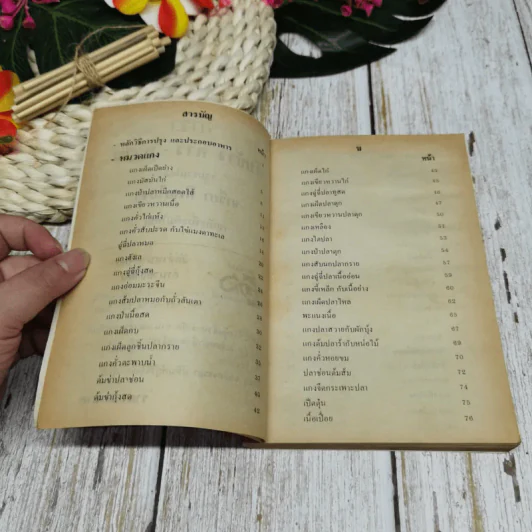 สารบัญ
- หลักวิธีการปรุง และประกอบอาหาร หน้า
- หมวดแกง
แกงเผ็ดเป็ดย่าง
แกงมัสมั่นไก่
แกงป่าปลาหมึกสอดไส้
แกงเขียวหวานเนื้อ
แกงคั่วไก่แห้ง
แกงคั่วสับปะรด กับไข่แมงดาทะเล
ฉู่ฉี่ปลาหมอ
แกงส้ม
แกงฉู่ฉี่กุ้งสด
แกงอ่อมมะระจีน
แกงส้มปลาหมอกับถั่วลันเตา
แกงป่าเนื้อสด
แกงเผ็ดกบ
แกงเผ็ดลูกชิ้นปลากราย
แกงคั่วตะพาบน้ำ
ต้มข่าปลาช่อน
ต้มข่ากุ้งสด
ข หน้า
แกงเผ็ดไก่
แกงเขียวหวานไก่
แกงฉู่ฉี่ปลาทูสด
แกงเผ็ดปลาดุก
แกงเขียวหวานปลาดุก
แกงเหลือง
แกงไตปลา
แกงป่าปลาดุก 56
แกงสับนกปลากราย 58
แกงฉู่ฉี่ปลาเนื้ออ่อน 59
แกงขี้เหล็ก กับเนื้อย่าง 60
แกงเผ็ดปลาไหล 62
พะแนงเนื้อ 65
แกงปลาสวายกับผักบุ้ง 67
แกงต้มปลาร้ากับหน่อไม้ 69
แกงคั่วหอยขม 70
ปลาช่อนต้มส้ม 72
แกงจืดกระเพาะปลา 74
เป็ดตุ๋น 75
เนื้อเปื่อย 76